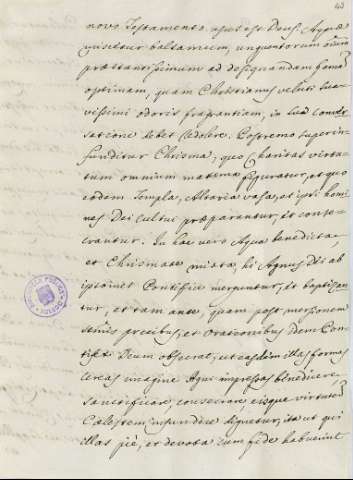 43
novo Testamento usus est Deus. Aquæ
balsamum, unguentorum omniū
præstantissimum ad designandam famā
optimam, quam Christianus veluti sua-
vissimi odoris fragrantiam, in sua conver
satione debet Postremo superin-
funditur Chrisma, quo Charitas virtu-
tum omnium maxima figuratur, et quo
eodem Templa, Altaria vasa, et ipsi homi
nes Dei cultui præparantur, et conse-
crantur. In hac vero Aqua benedicta,
et Chrismate mixta, hi Agnus Dei ab
ipsomet Pontifice merguntur, et baptizan
tur, et tam ante, quam post mersionem
precibus, et orationibus idem Pon-
tifex Deum obsecrat, ut easdem illas formas
cereas imagine Agni impressas benedicere,
sanctificare, consecrare, eisque virtutem
Cælestem infundere dignetur, ita ut qui
illas piè, et devota cum fide habuerint